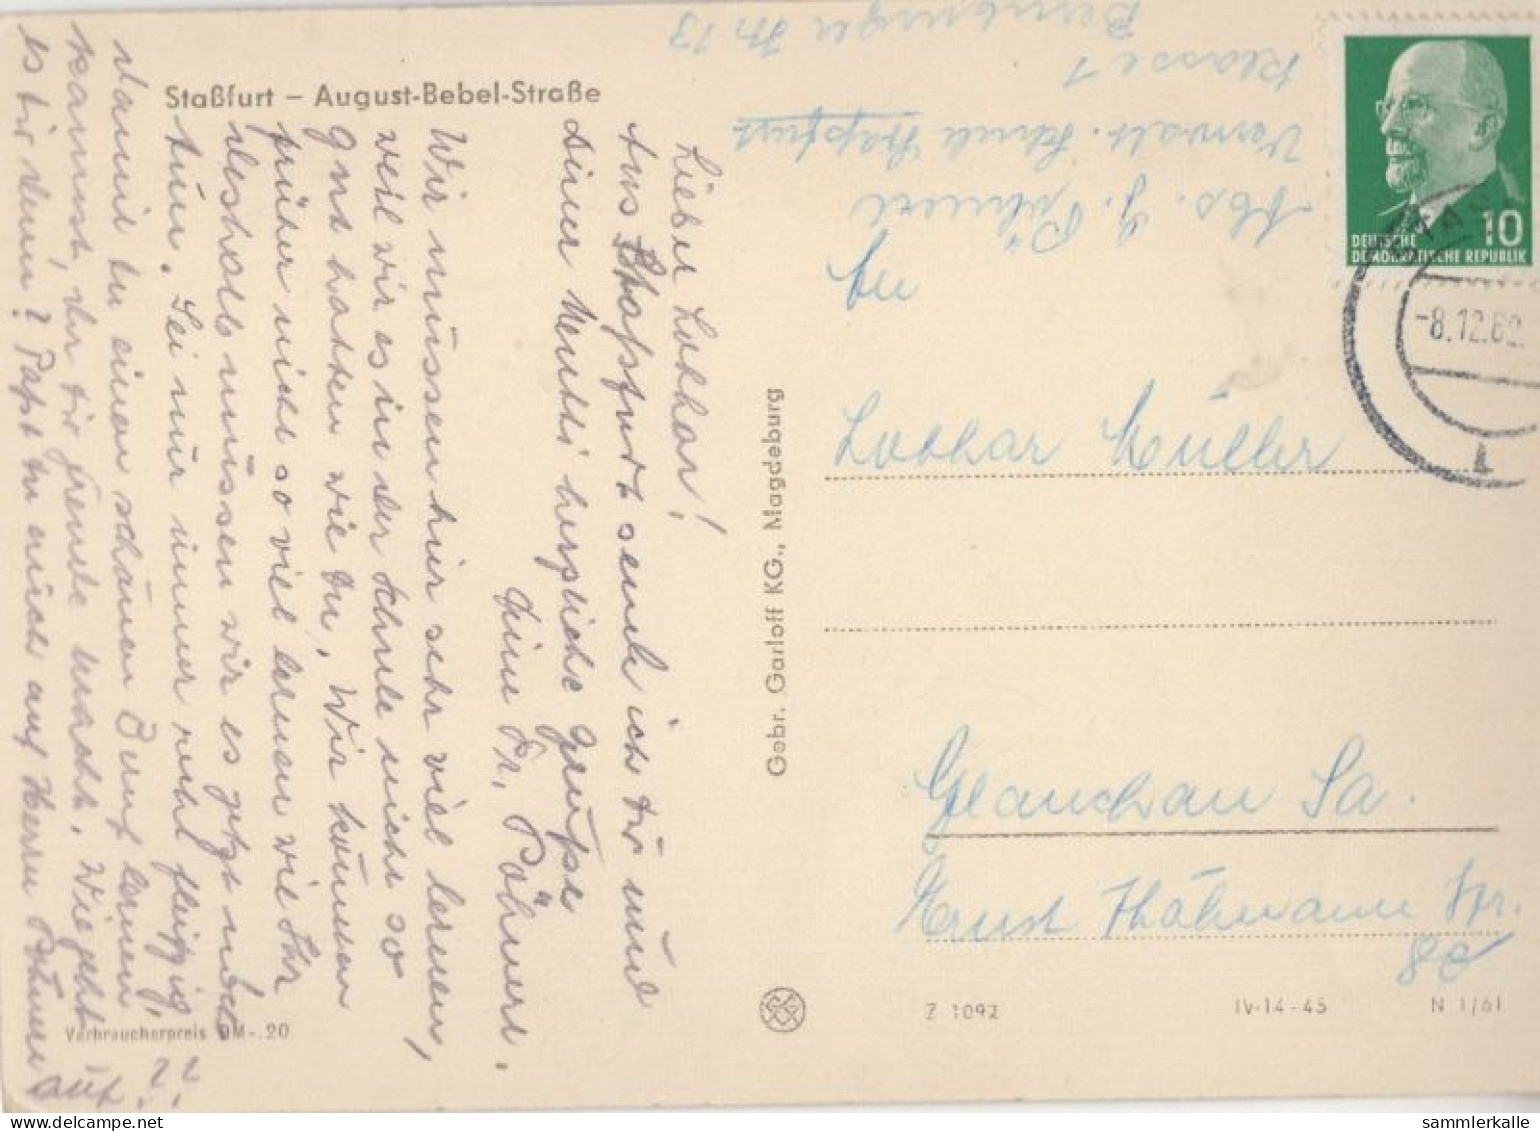 Staßfurt – August-Bebel-Straße
Lieber Lothar!
Aus Staßfurt sende ich Dir und
Deiner Mutti herzliche Grüße
Deine Fr. Pöhnert.
Wir müssen hier sehr viel lernen,
weil wir es in der Schule nicht so
gut hatten wie Du. Wir können
früher nicht so viel lernen wie Ihr
deshalb müssen wir es jetzt noch
tun. Sei nur immer recht fleißig
damit Du einen schönen Beruf lernen
kannst, der Dir Freude macht. Wie geht
es Dir denn? Paßt Du auch auf Herrn
auf??
Verbraucherpreis DM -.20
Gebr. Garloff KG., Magdeburg
Abs. G. Pöhnert
Verwalt. Schule Staßfurt
Klasse 1
Bernburger Str 13
DEUTSCHE
DEMOKRATISCHE REPUBLIK
10
-8.12.62.
An
Lothar Müller
Glauchau Sa.
Ernst Thälmann Str.
8c
Z 1092
IV-14-45
N 1/61
sammlerkalle